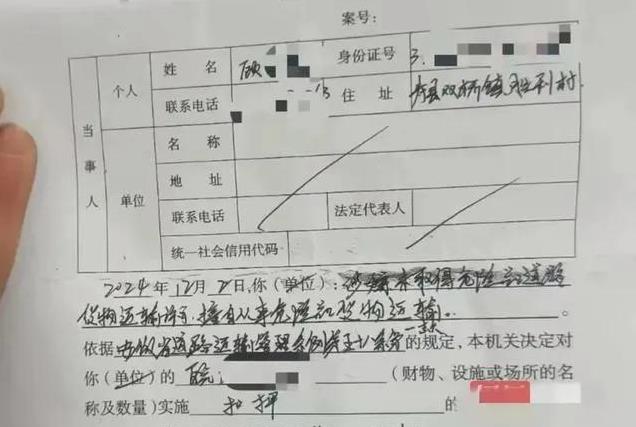 案号：
当事人 个人 姓 名 顾 身份证号 3.
联系电话 住 址 县双桥镇胜利村
单位 名 称
地 址
联系电话 法定代表人
统一社会信用代码
2024年12月2日,你（单位）：涉嫌未取得危险品道路
货物运输许可,擅自从事危险品货物运输。
依据 省道路运输管理条例第五十八条第一款 的规定,本机关决定对
你（单位）的 皖 （财物、设施或场所的名
称及数量）实施 扣押 的